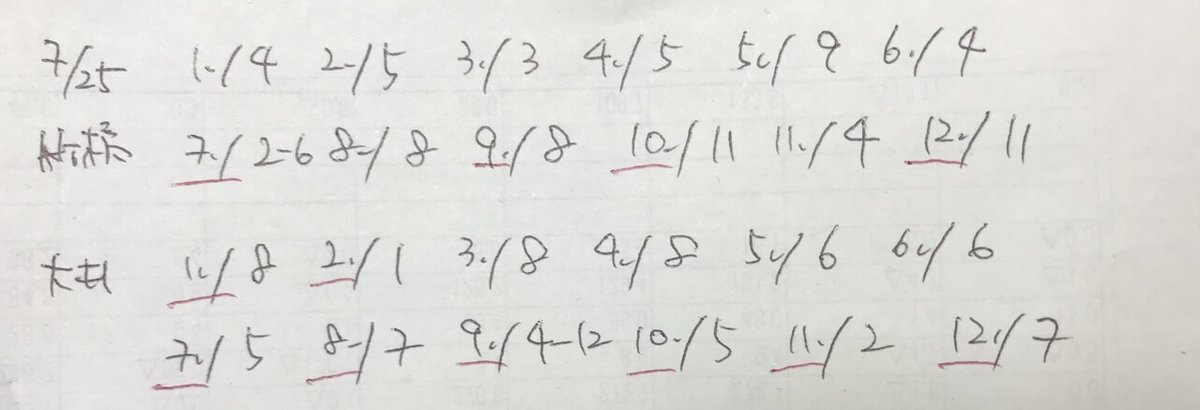 7/25 1./4 2./5 3./3 4./5 5./9 6./4
船橋 7./2-6 8./8 9./8 10./11 11./4 12./11
大井 1./8 2./1 3./8 4./8 5./6 6./6
7./5 8./7 9./4-12 10./5 11./2 12./7